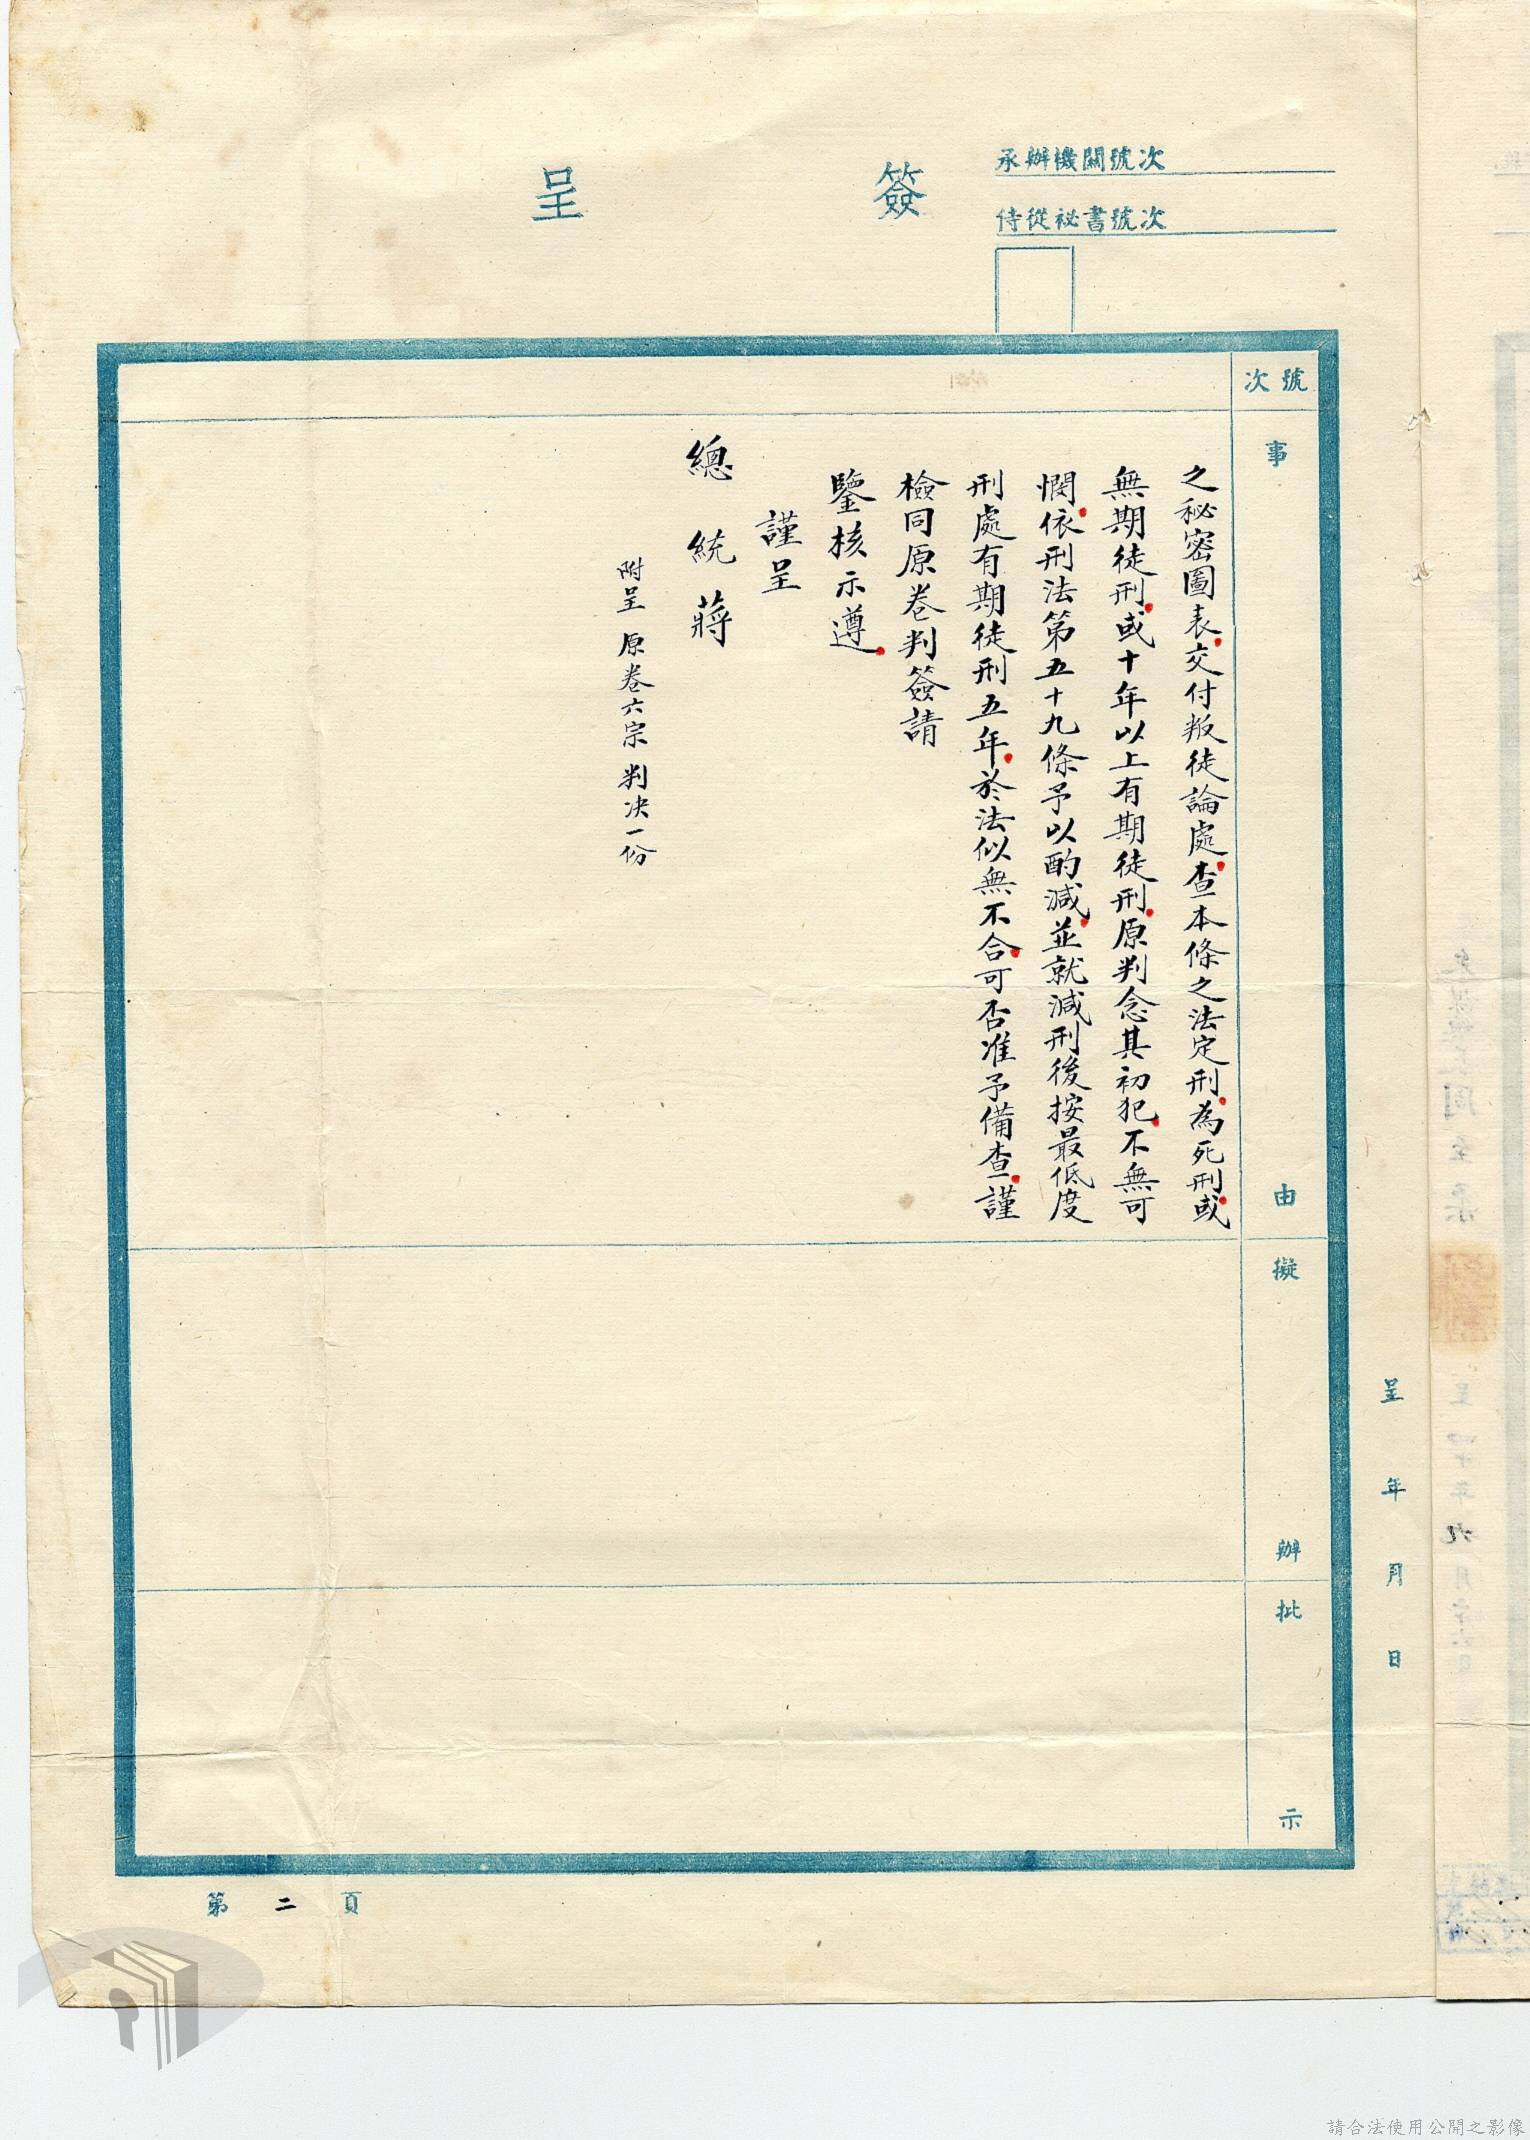 承辦機關號次
侍從祕書號次
簽呈
號次
事由
擬辦
批示
之秘密圖表交付叛徒論處查本條之法定刑為死刑或
無期徒刑或十年以上有期徒刑原判念其初犯不無可
憫依刑法第五十九條予以酌減並就減刑後按最低度
刑處有期徒刑五年於法似無不合可否准予備查謹
檢同原卷判簽請
鑒核示遵
謹呈
總統蔣
附呈 原卷六宗 判决一份
呈 年 月 日
第二頁
請合法使用公開之影像